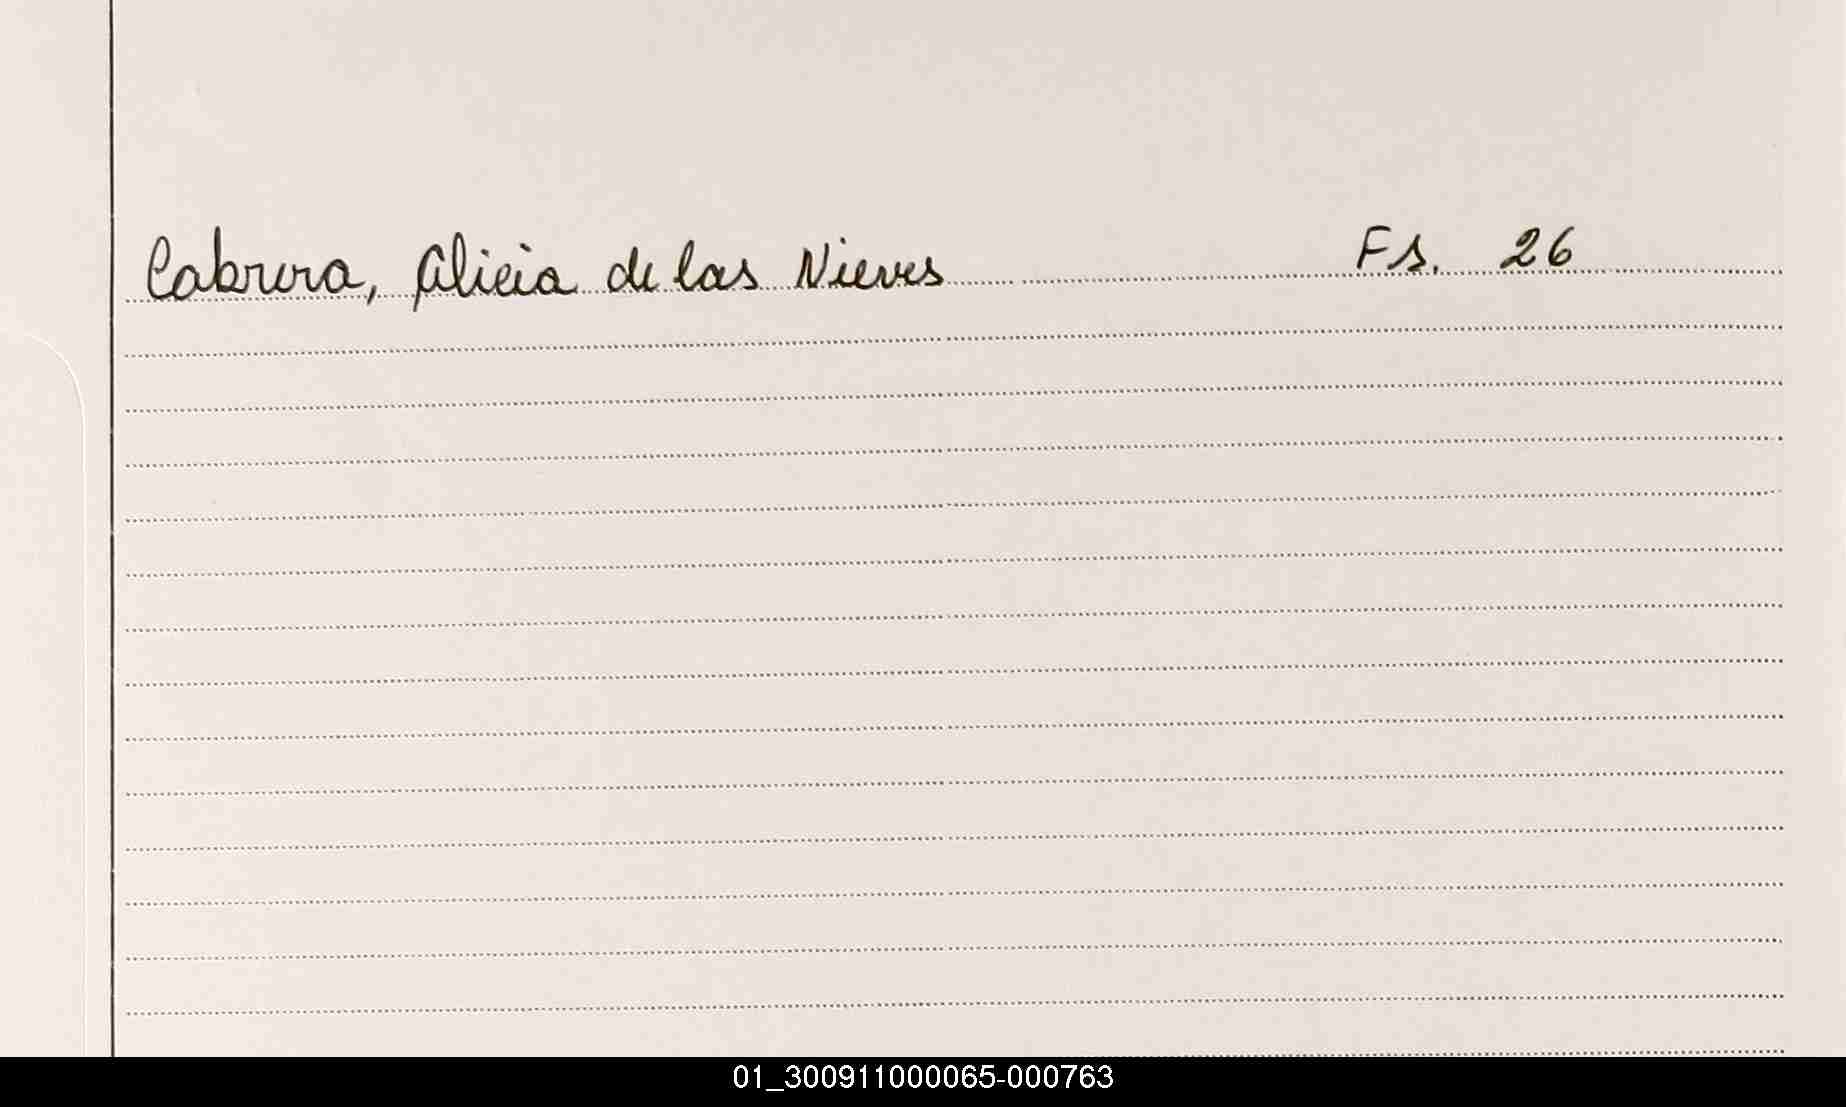 Cabrera, Alicia de las Nieves Fs. 26
01_300911000065-000763